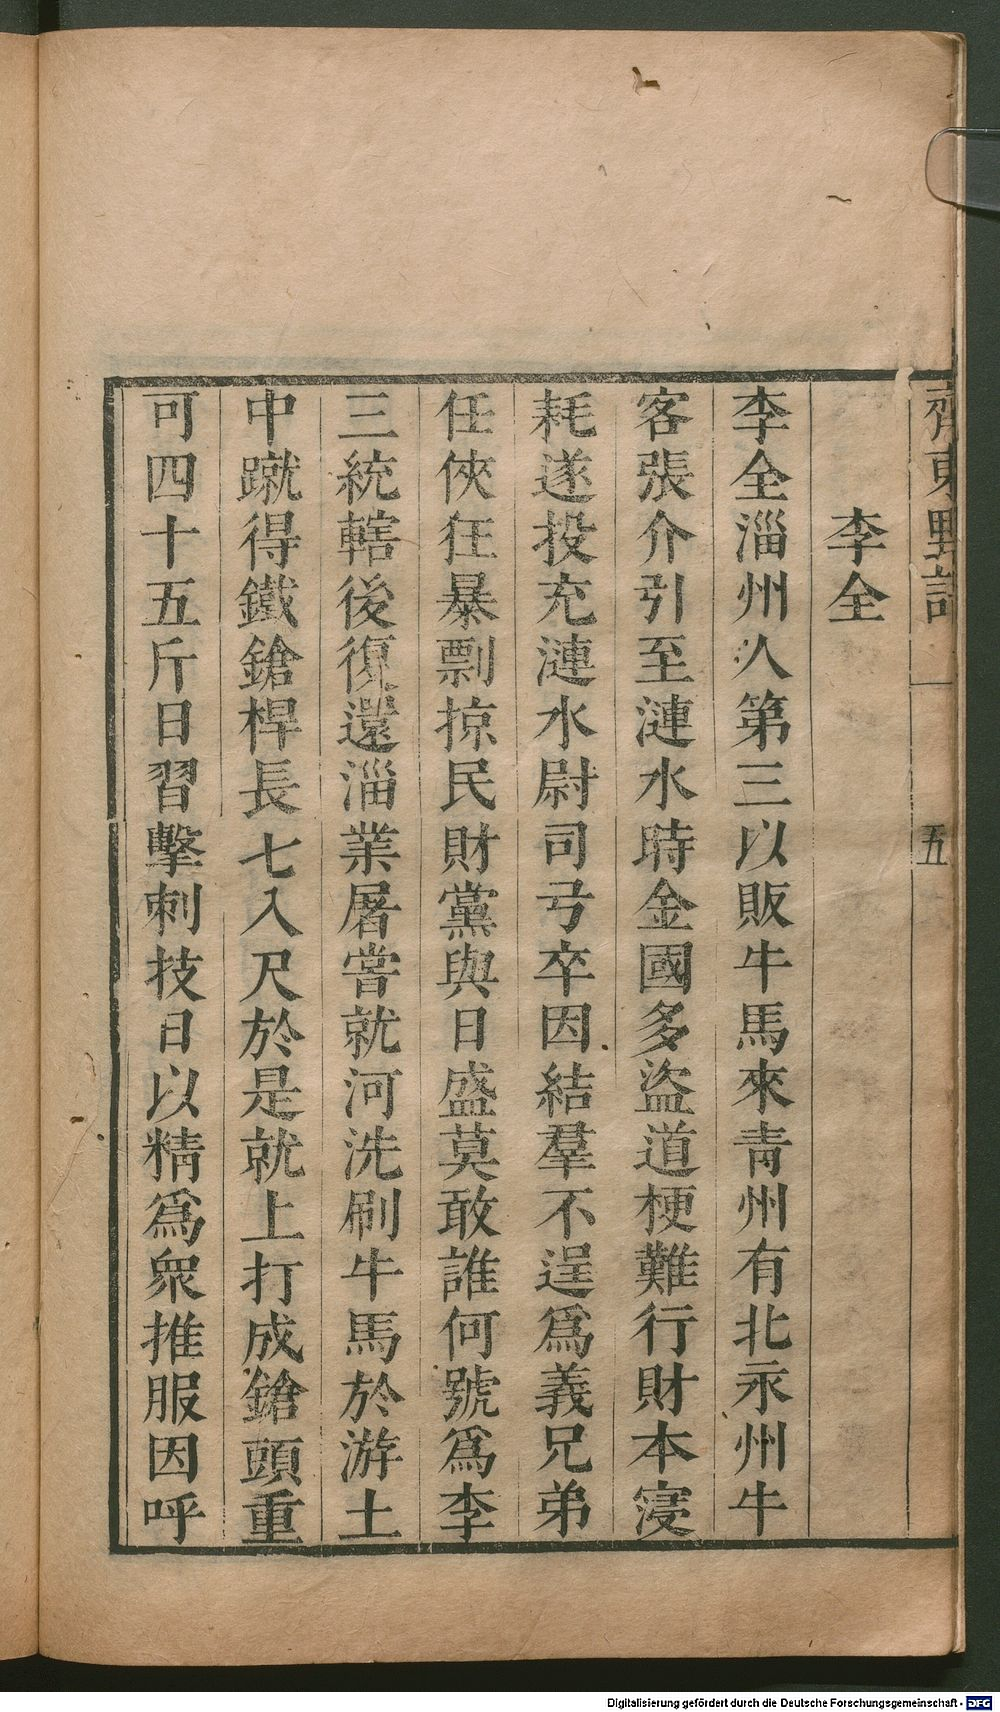 齊東野語 五
李全
李全淄州人第三以販牛馬來青州有北永州牛
客張介引至漣水時金國多盜道梗難行財本寖
耗遂投充漣水尉司弓卒因結羣不逞爲義兄弟
任俠狂暴剽掠民財黨與日盛莫敢誰何號爲李
三統轄後復還淄業屠嘗就河洗刷牛馬於游土
中蹴得鐵鎗桿長七八尺於是就上打成鎗頭重
可四十五斤日習擊刺技日以精爲衆推服因呼
Digitalisierung gefördert durch die Deutsche Forschungsgemeinschaft - DFG